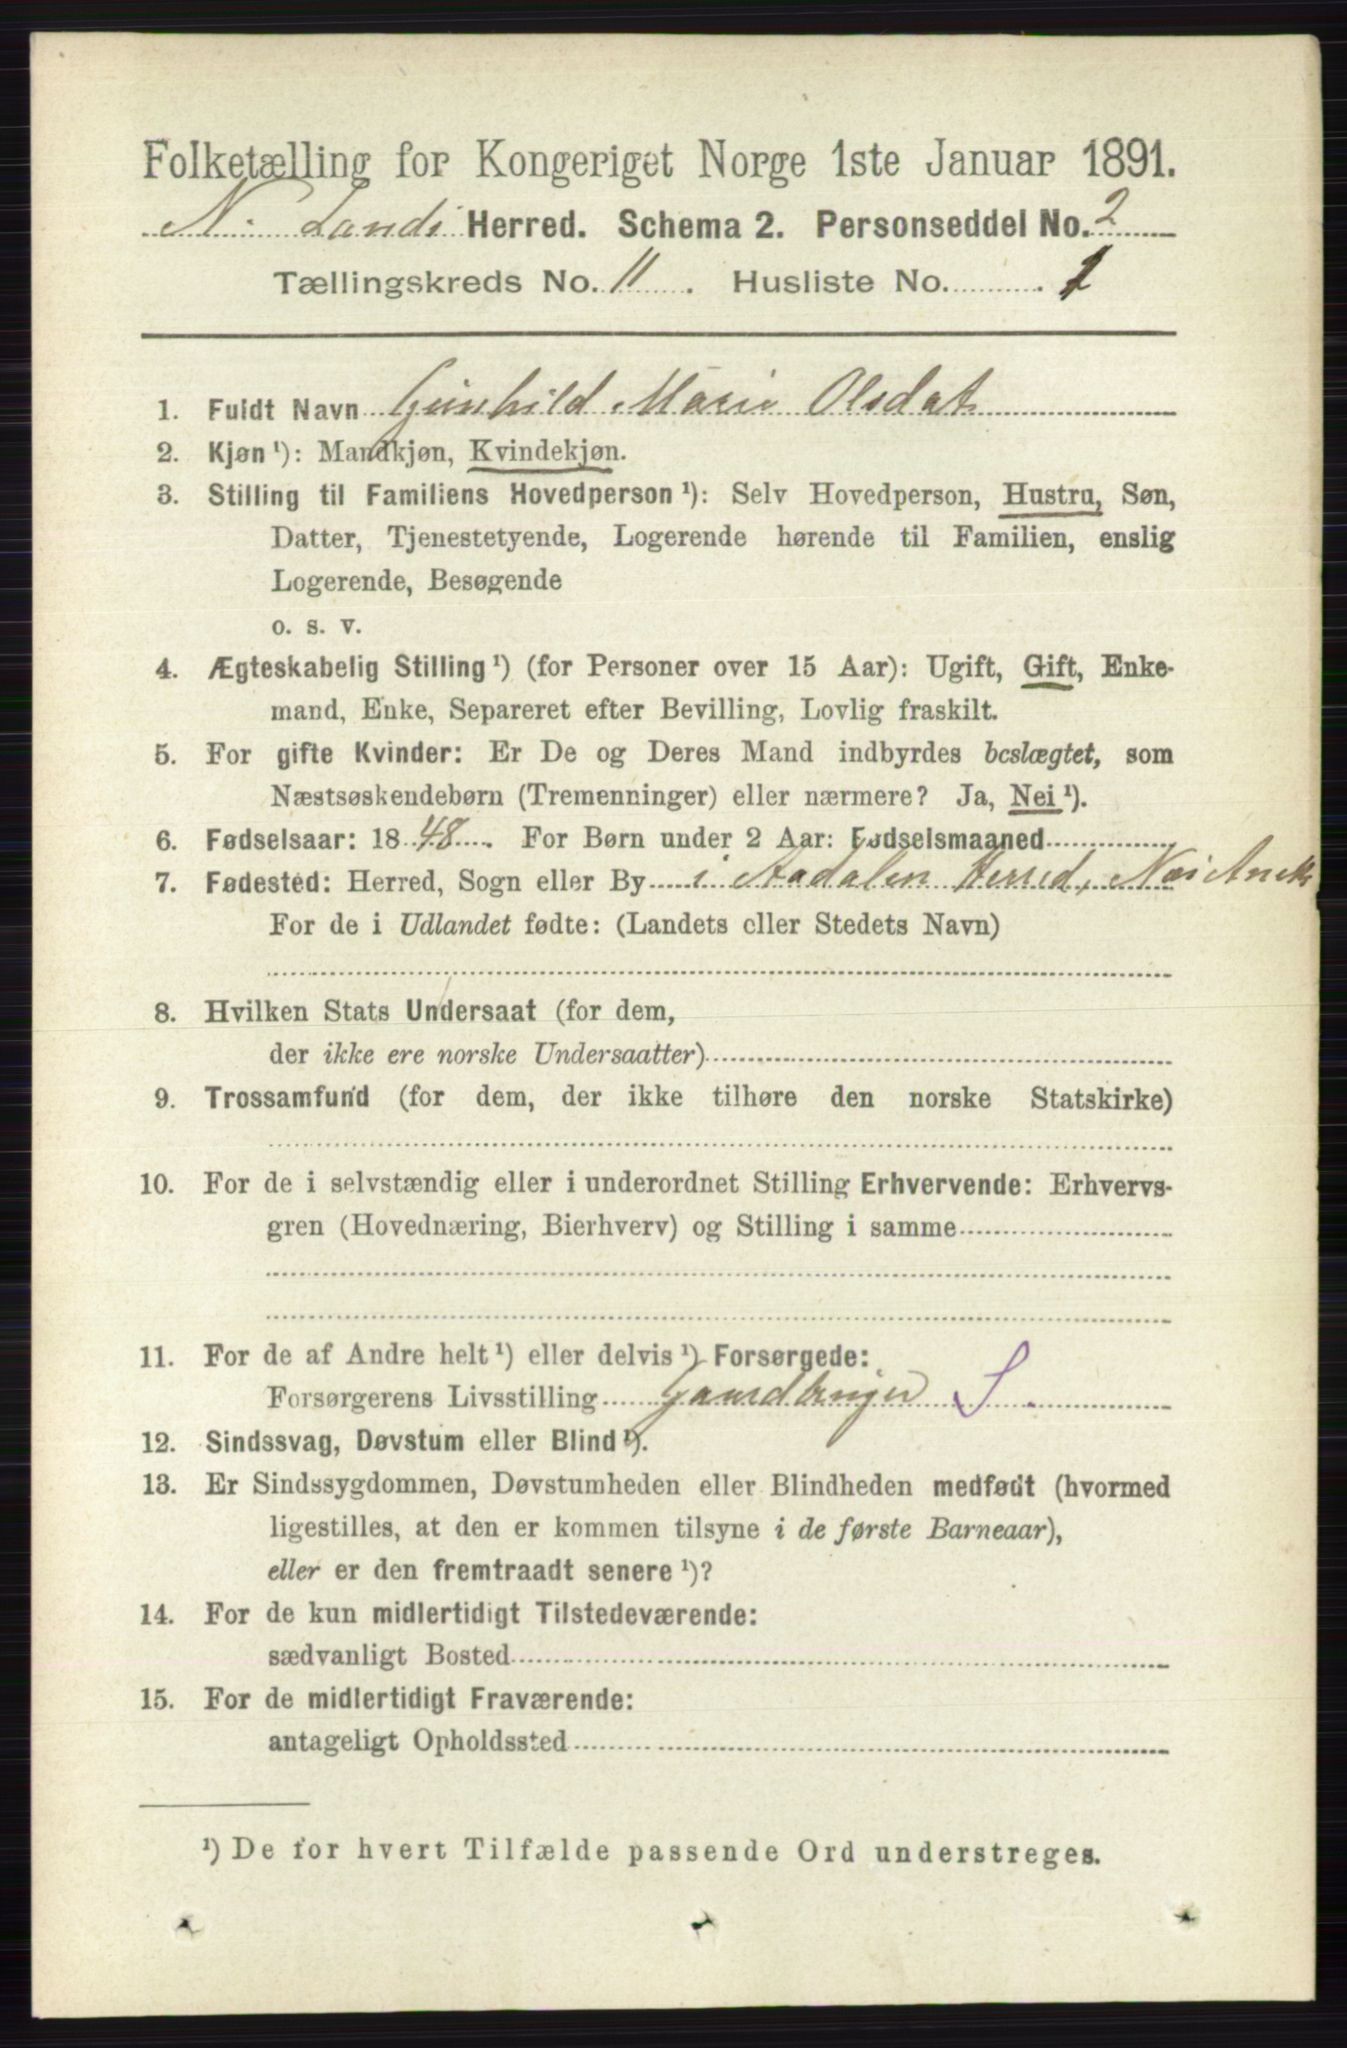 Folketælling for Kongeriget Norge 1ste Januar 1891.
N. Lands Herred. Schema 2. Personseddel No. 2
Tællingskreds No. 11. Husliste No. 1
1. Fuldt Navn Gunhild Marie Olsdat
2. Kjøn ¹): Mandkjøn, Kvindekjøn.
3. Stilling til Familiens Hovedperson ¹): Selv Hovedperson, Hustru, Søn,
Datter, Tjenestetyende, Logerende hørende til Familien, enslig
Logerende, Besøgende
o. s. v.
4. Ægteskabelig Stilling ¹) (for Personer over 15 Aar): Ugift, Gift, Enke-
mand, Enke, Separeret efter Bevilling, Lovlig fraskilt.
5. For gifte Kvinder: Er De og Deres Mand indbyrdes beslægtet, som
Næstsøskendebørn (Tremenninger) eller nærmere? Ja, Nei ¹).
6. Fødselsaar: 1848. For Børn under 2 Aar: Fødselsmaaned
7. Fødested: Herred, Sogn eller By i Aadalen Herred,
For de i Udlandet fødte: (Landets eller Stedets Navn)
8. Hvilken Stats Undersaat (for dem,
der ikke ere norske Undersaatter)
9. Trossamfund (for dem, der ikke tilhøre den norske Statskirke)
10. For de i selvstændig eller i underordnet Stilling Erhvervende: Erhvervs-
gren (Hovednæring, Bierhverv) og Stilling i samme
11. For de af Andre helt ¹) eller delvis ¹) Forsørgede:
Forsørgerens Livsstilling Gaardbruger S
12. Sindssvag, Døvstum eller Blind ¹).
13. Er Sindssygdommen, Døvstumheden eller Blindheden medfødt (hvormed
ligestilles, at den er kommen tilsyne i de første Barneaar),
eller er den fremtraadt senere ¹)?
14. For de kun midlertidigt Tilstedeværende:
sædvanligt Bosted
15. For de midlertidigt Fraværende:
antageligt Opholdssted
¹) De for hvert Tilfælde passende Ord understreges.